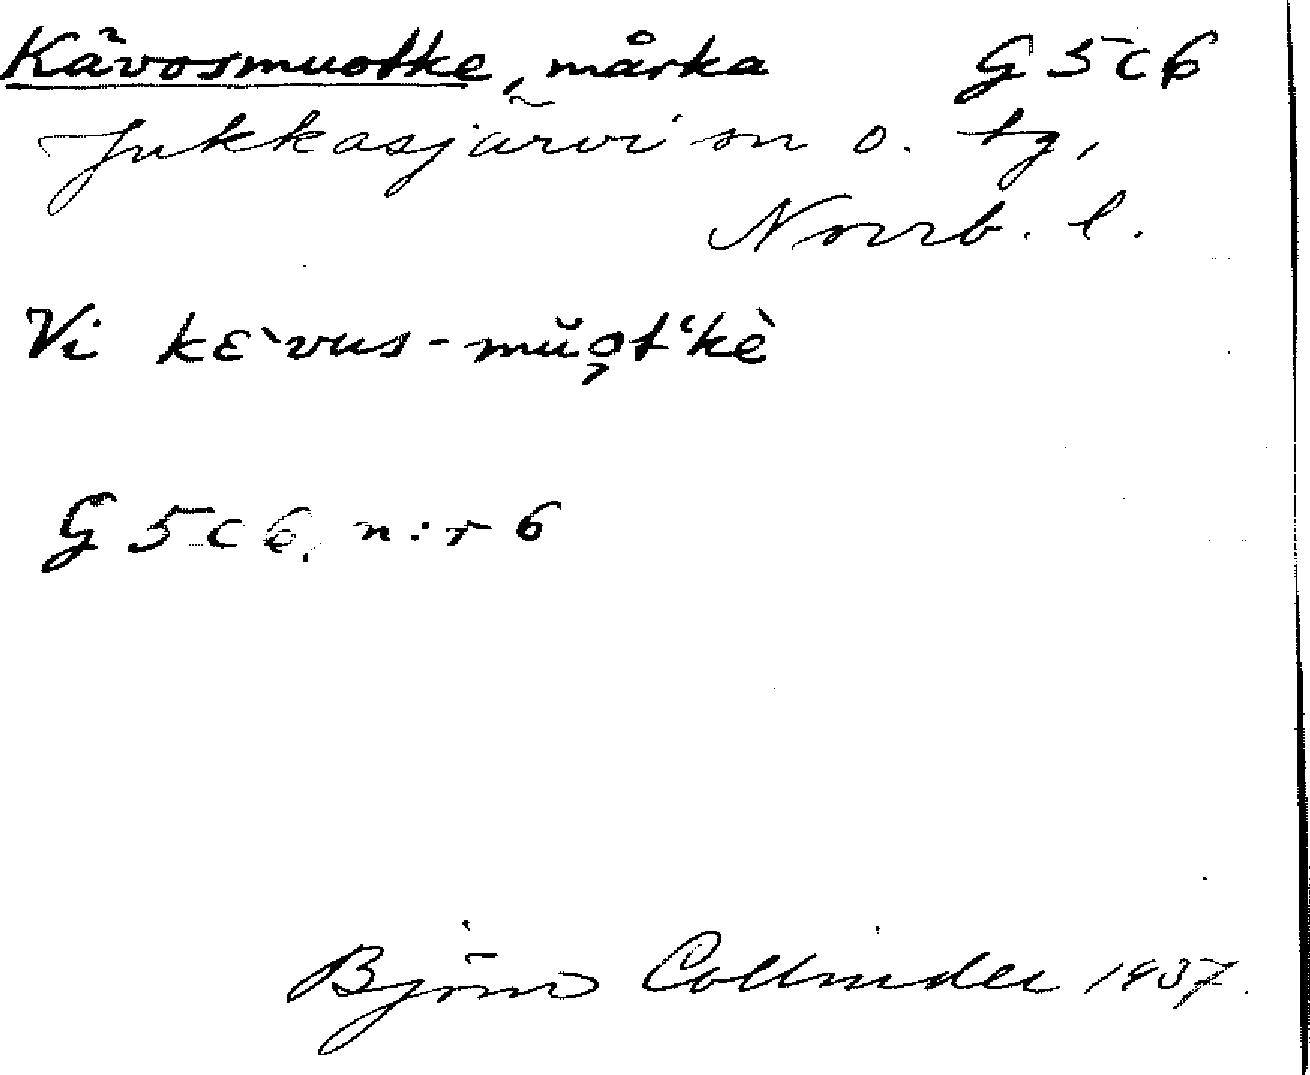 Kävosmuotke, märka G 5 c 6
Jukkasjärvi sn o. tg,
Norrb. l.
Vi kɛ̀vus-mŭo̧tʻkè
G 5 c 6, n:r 6
Björn Collinder 1937.